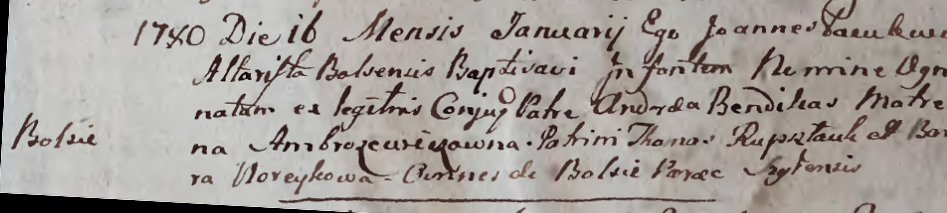 1780 Die 16 Mensis Januarij Ego Joannes
Altarista Bolsensis Baptisavi Infantem Nomine Agn
natam ex legitmis Conjug Patre Andræa Bendikas Matre
Bolsie
na Ambrozewiczowna. Patrini Thomas Rupsztauk et Bar
ra Noreykowa - Omnes de Bolsie Paræc